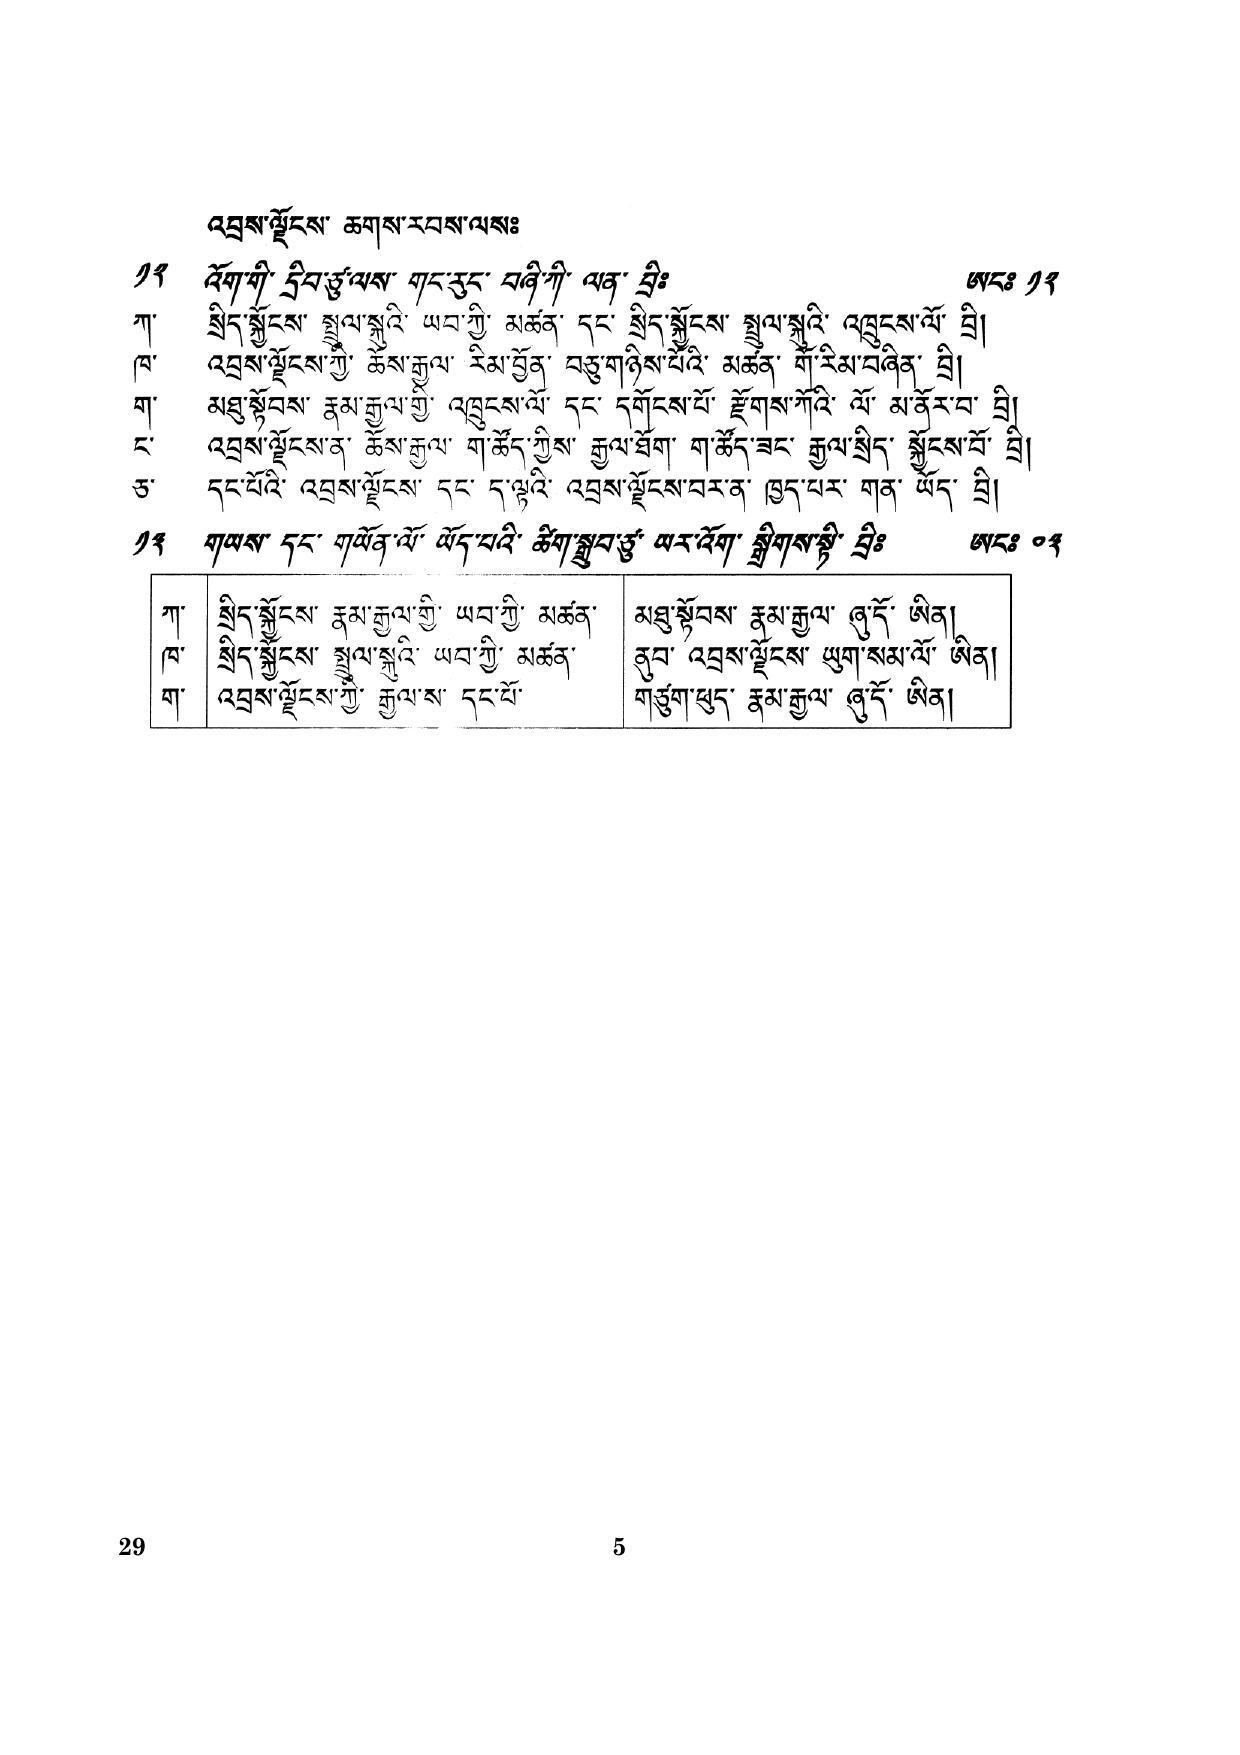 འབྲས་ལྗོངས་ ཆགས་རབས་ལསཿ
༡༢ འོག་གི་ དྲིབ་ཙུ་ལས་ གང་རུང་ བཞི་ཀི་ ལན་ བྲིཿ ཨངཿ ༡༢
ཀ་ སྲིད་སྐྱོངས་ སྤྲུལ་སྐུའི་ ཡབ་ཀྱི་ མཚན་ དང་ སྲིད་སྐྱོངས་ སྤྲུལ་སྐུའི་ འཁྲུངས་ལོ་ བྲི།
ཁ་ འབྲས་ལྗོངས་ཀྱི་ ཆོས་རྒྱལ་ རིམ་བྱོན་ བཅུ་གཉིས་པོའི་ མཚན་ གོ་རིམ་བཞིན་ བྲི།
ག་ མཐུ་སྟོབས་ རྣམ་རྒྱལ་གྱི་ འཁྲུངས་ལོ་ དང་ དགོངས་པོ་ རྫོགས་ཀོའི་ ལོ་ མ་ནོར་བ་ བྲི།
ང་ འབྲས་ལྗོངས་ན་ ཆོས་རྒྱལ་ ག་ཚོད་ཀྱིས་ རྒྱལ་ཐོག་ ག་ཚོད་ཟང་ རྒྱལ་སྲིད་ སྐྱོངས་བོ་ བྲི།
ཅ་ དང་པོའི་ འབྲས་ལྗོངས་ དང་ ད་ལྟའི་ འབྲས་ལྗོངས་བར་ན་ ཁྱད་པར་ གན་ ཡོད་ བྲི།
༡༣ གཡས་ དང་ གཡོན་ལོ་ ཡོད་པའི་ ཚིག་སྒྲུབ་ཙུ་ ཡར་འོག་ སྒྲིགས་སྟི་ བྲིཿ ཨངཿ ༠༣
ཀ་ སྲིད་སྐྱོངས་ རྣམ་རྒྱལ་གྱི་ ཡབ་ཀྱི་ མཚན་ མཐུ་སྟོབས་ རྣམ་རྒྱལ་ ཞུ་དོ་ ཨིན།
ཁ་ སྲིད་སྐྱོངས་ སྤྲུལ་སྐུའི་ ཡབ་ཀྱི་ མཚན་ ནུབ་ འབྲས་ལྗོངས་ ཡུག་སམ་ལོ་ ཨིན།
ག་ འབྲས་ལྗོངས་ཀྱི་ རྒྱལ་ས་ དང་པོ་ གཙུག་ཕུད་ རྣམ་རྒྱལ་ ཞུ་དོ་ ཨིན།
29 5